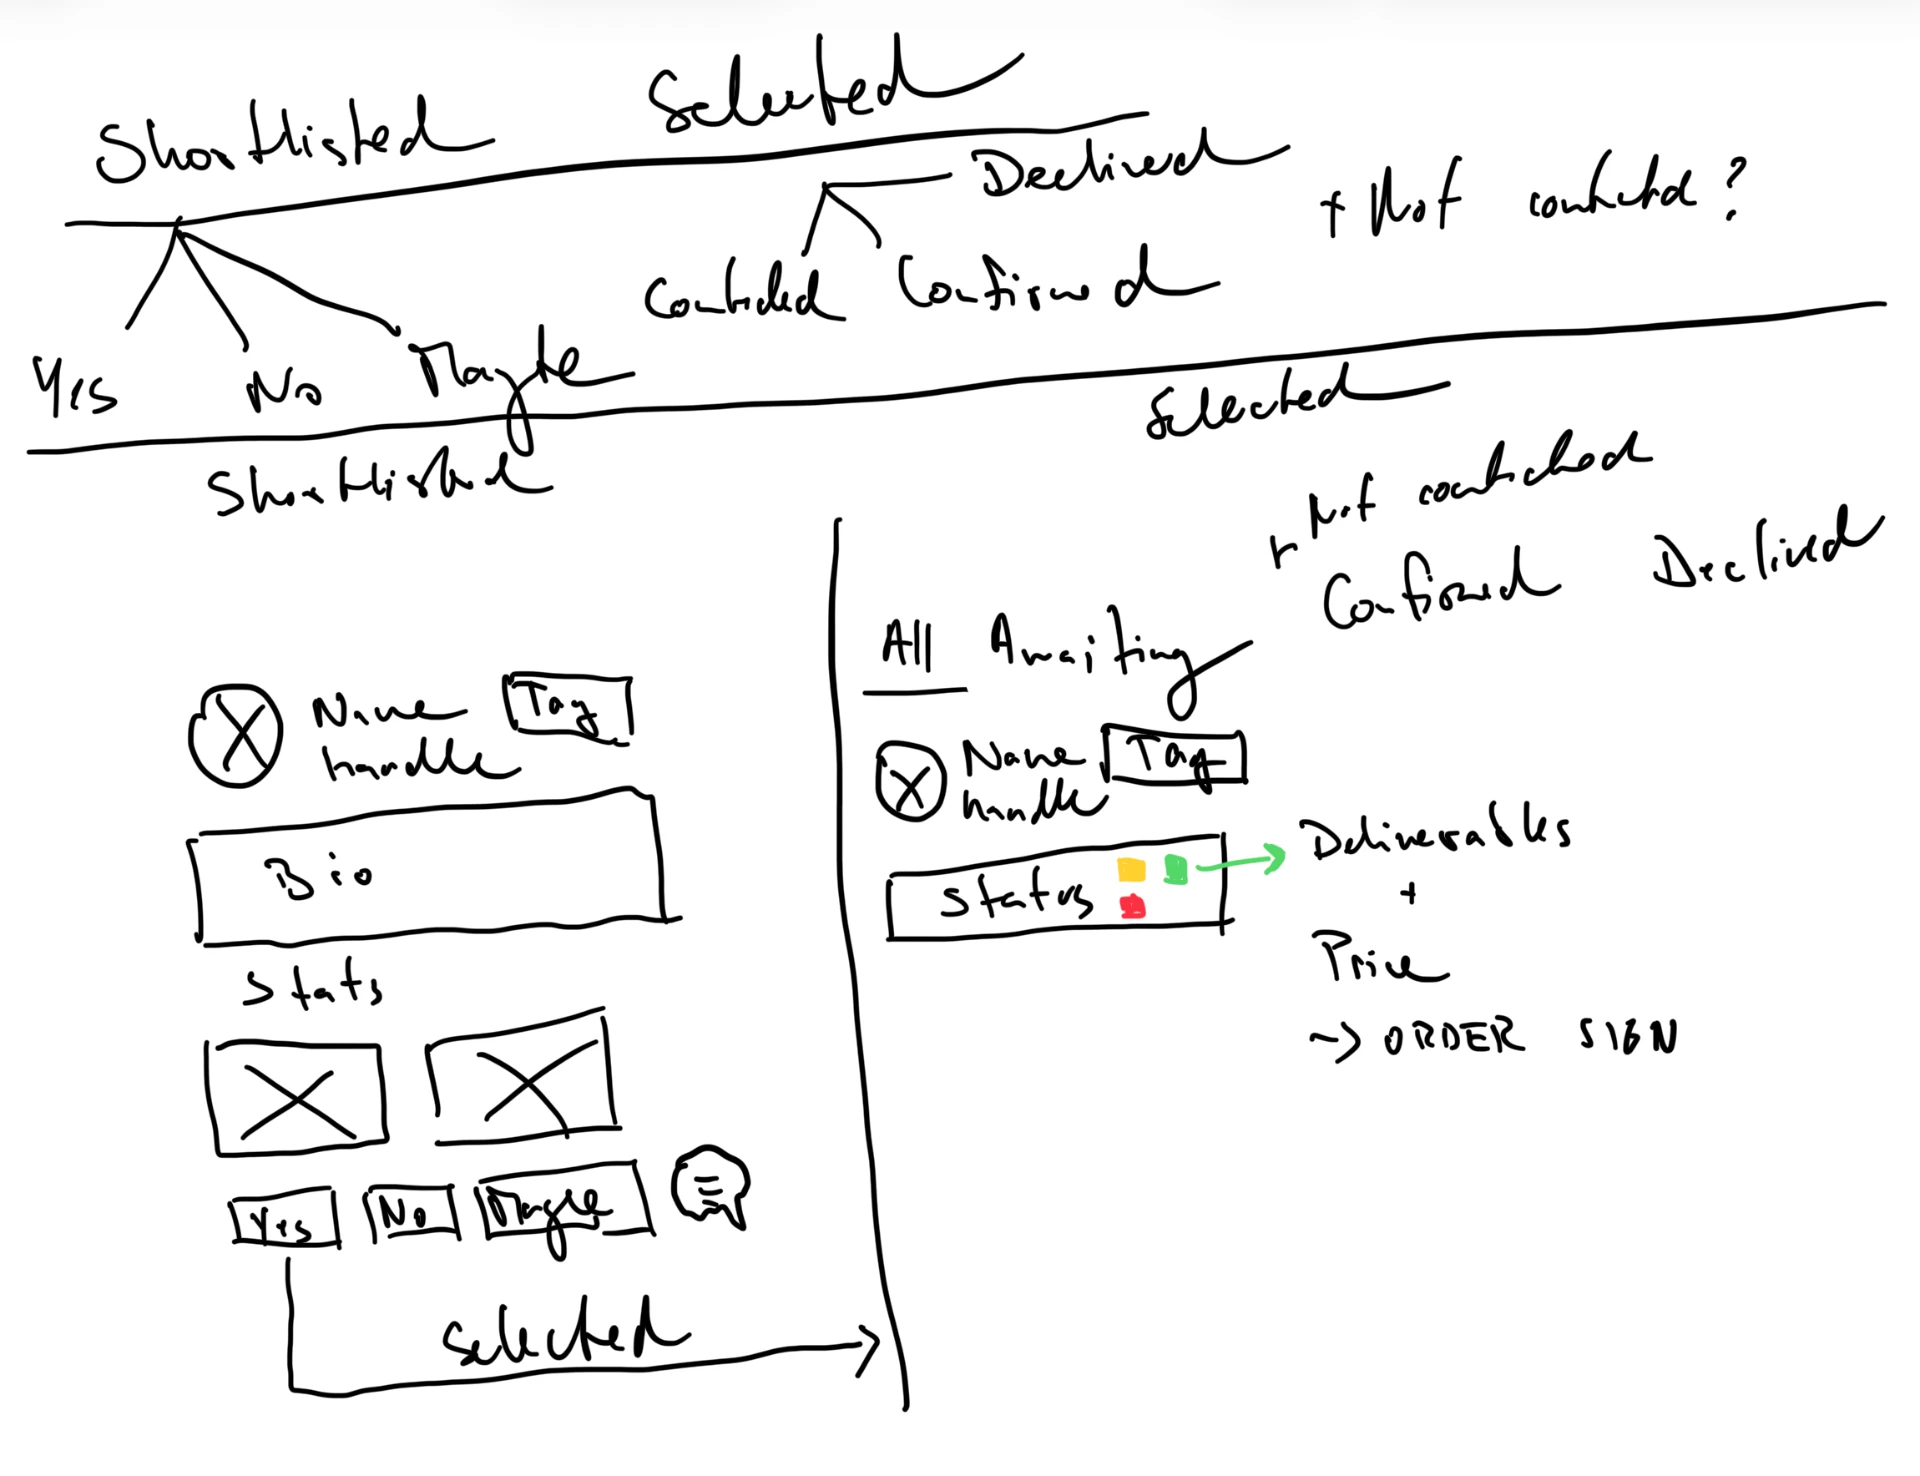 Shortlisted
Selected
Declined
+ Not contacted?
Contacted Confirmed
Yes No Maybe
Shortlisted
Selected
+ Not contacted
Confirmed Declined
All Awaiting
Name
handle
Tag
Bio
Stats
Yes
No
Maybe
Selected
Name
handle
Tag
Status
Deliverables
+
Price
~> ORDER SIGN